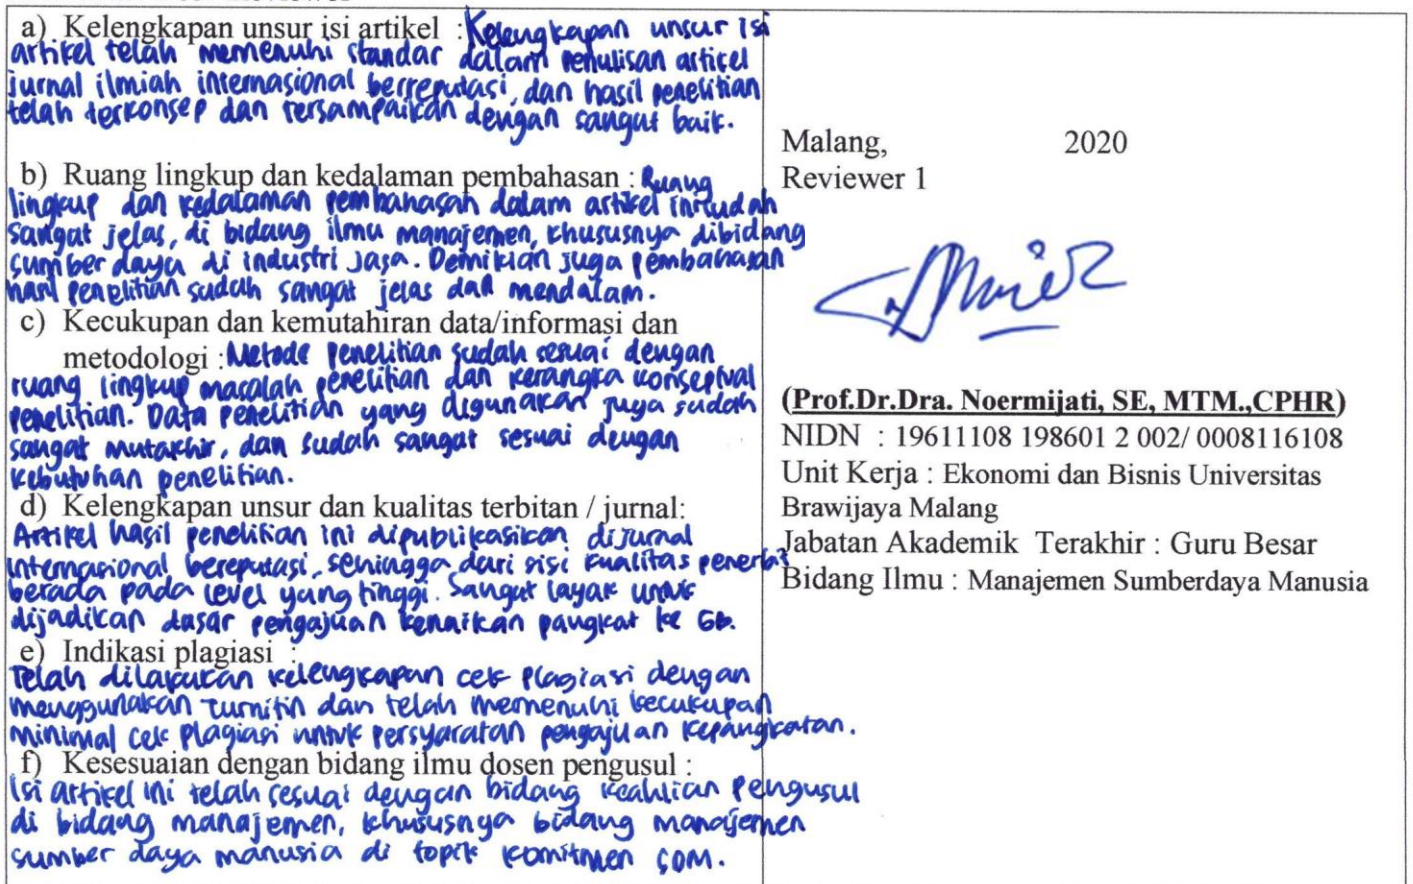 a) Kelengkapan unsur isi artikel : Kelengkapan unsur isi
artikel telah memenuhi standar dalam penulisan artikel
jurnal ilmiah internasional bereputasi, dan hasil penelitian
telah terkonsep dan tersampaikan dengan sangat baik.
b) Ruang lingkup dan kedalaman pembahasan : Ruang
lingkup dan kedalaman pembahasan dalam artikel ini sudah
sangat jelas, di bidang ilmu manajemen, khususnya dibidang
sumber daya di industri jasa. Demikian juga pembahasan
hasil penelitian sudah sangat jelas dan mendalam.
c) Kecukupan dan kemutahiran data/informasi dan
metodologi : Metode penelitian sudah sesuai dengan
ruang lingkup masalah penelitian dan kerangka konseptual
penelitian. Data penelitian yang digunakan juga sudah
sangat mutakhir, dan sudah sangat sesuai dengan
kebutuhan penelitian.
d) Kelengkapan unsur dan kualitas terbitan / jurnal:
Artikel hasil penelitian ini dipublikasikan dijurnal
internasional bereputasi, sehingga dari sisi kualitas penerbit
berada pada level yang tinggi. Sangat layak untuk
dijadikan dasar pengajuan kenaikan pangkat ke GB.
e) Indikasi plagiasi :
Telah dilakukan kelengkapan cek plagiasi dengan
menggunakan turnitin dan telah memenuhi kecukupan
minimal cek plagiasi untuk persyaratan pengajuan kepangkatan.
f) Kesesuaian dengan bidang ilmu dosen pengusul :
Isi artikel ini telah sesuai dengan bidang keahlian pengusul
di bidang manajemen, khususnya bidang manajemen
sumber daya manusia di topik komitmen SDM.
Malang, 2020
Reviewer 1
(Prof.Dr.Dra. Noermijati, SE, MTM.,CPHR)
NIDN : 19611108 198601 2 002/ 0008116108
Unit Kerja : Ekonomi dan Bisnis Universitas
Brawijaya Malang
Jabatan Akademik Terakhir : Guru Besar
Bidang Ilmu : Manajemen Sumberdaya Manusia